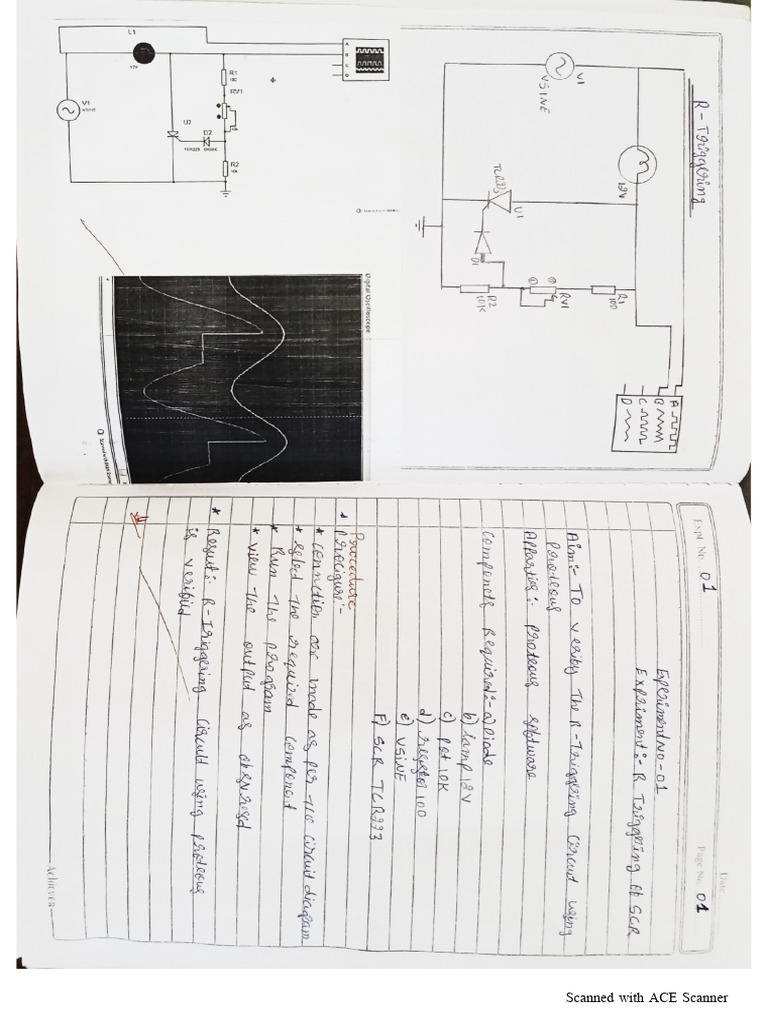 R-Triggering
V1
VSINE
12V
TCR223
U1
D1
R2
10K
RV1
R1
100
A
B
C
D
L1
12V
V1
VSINE
R1
100
RV1
U2
D2
R2
10k
A
B
C
D
Digital Oscilloscope
Date
Expt. No. 01
Page No. 01
Experiment NO-01
Experiment:- R Triggering of SCR
Aim:- To verify The R-Triggering Circuit using
Proteous
Apparties:- Proteous software
Components Required:- a) Diode
b) Lamp 12V
c) pot 10K
d) resistor 100
e) VSINE
F) SCR TCR223
Procedure
* Procigure:-
* Connction are made as per the circuit diagram
* Select the required component
* Run the program
* View the output as obserevd
* Result:- R-Triggering Circuit using Proteous
is verified
ACHIEVER
Scanned with ACE Scanner